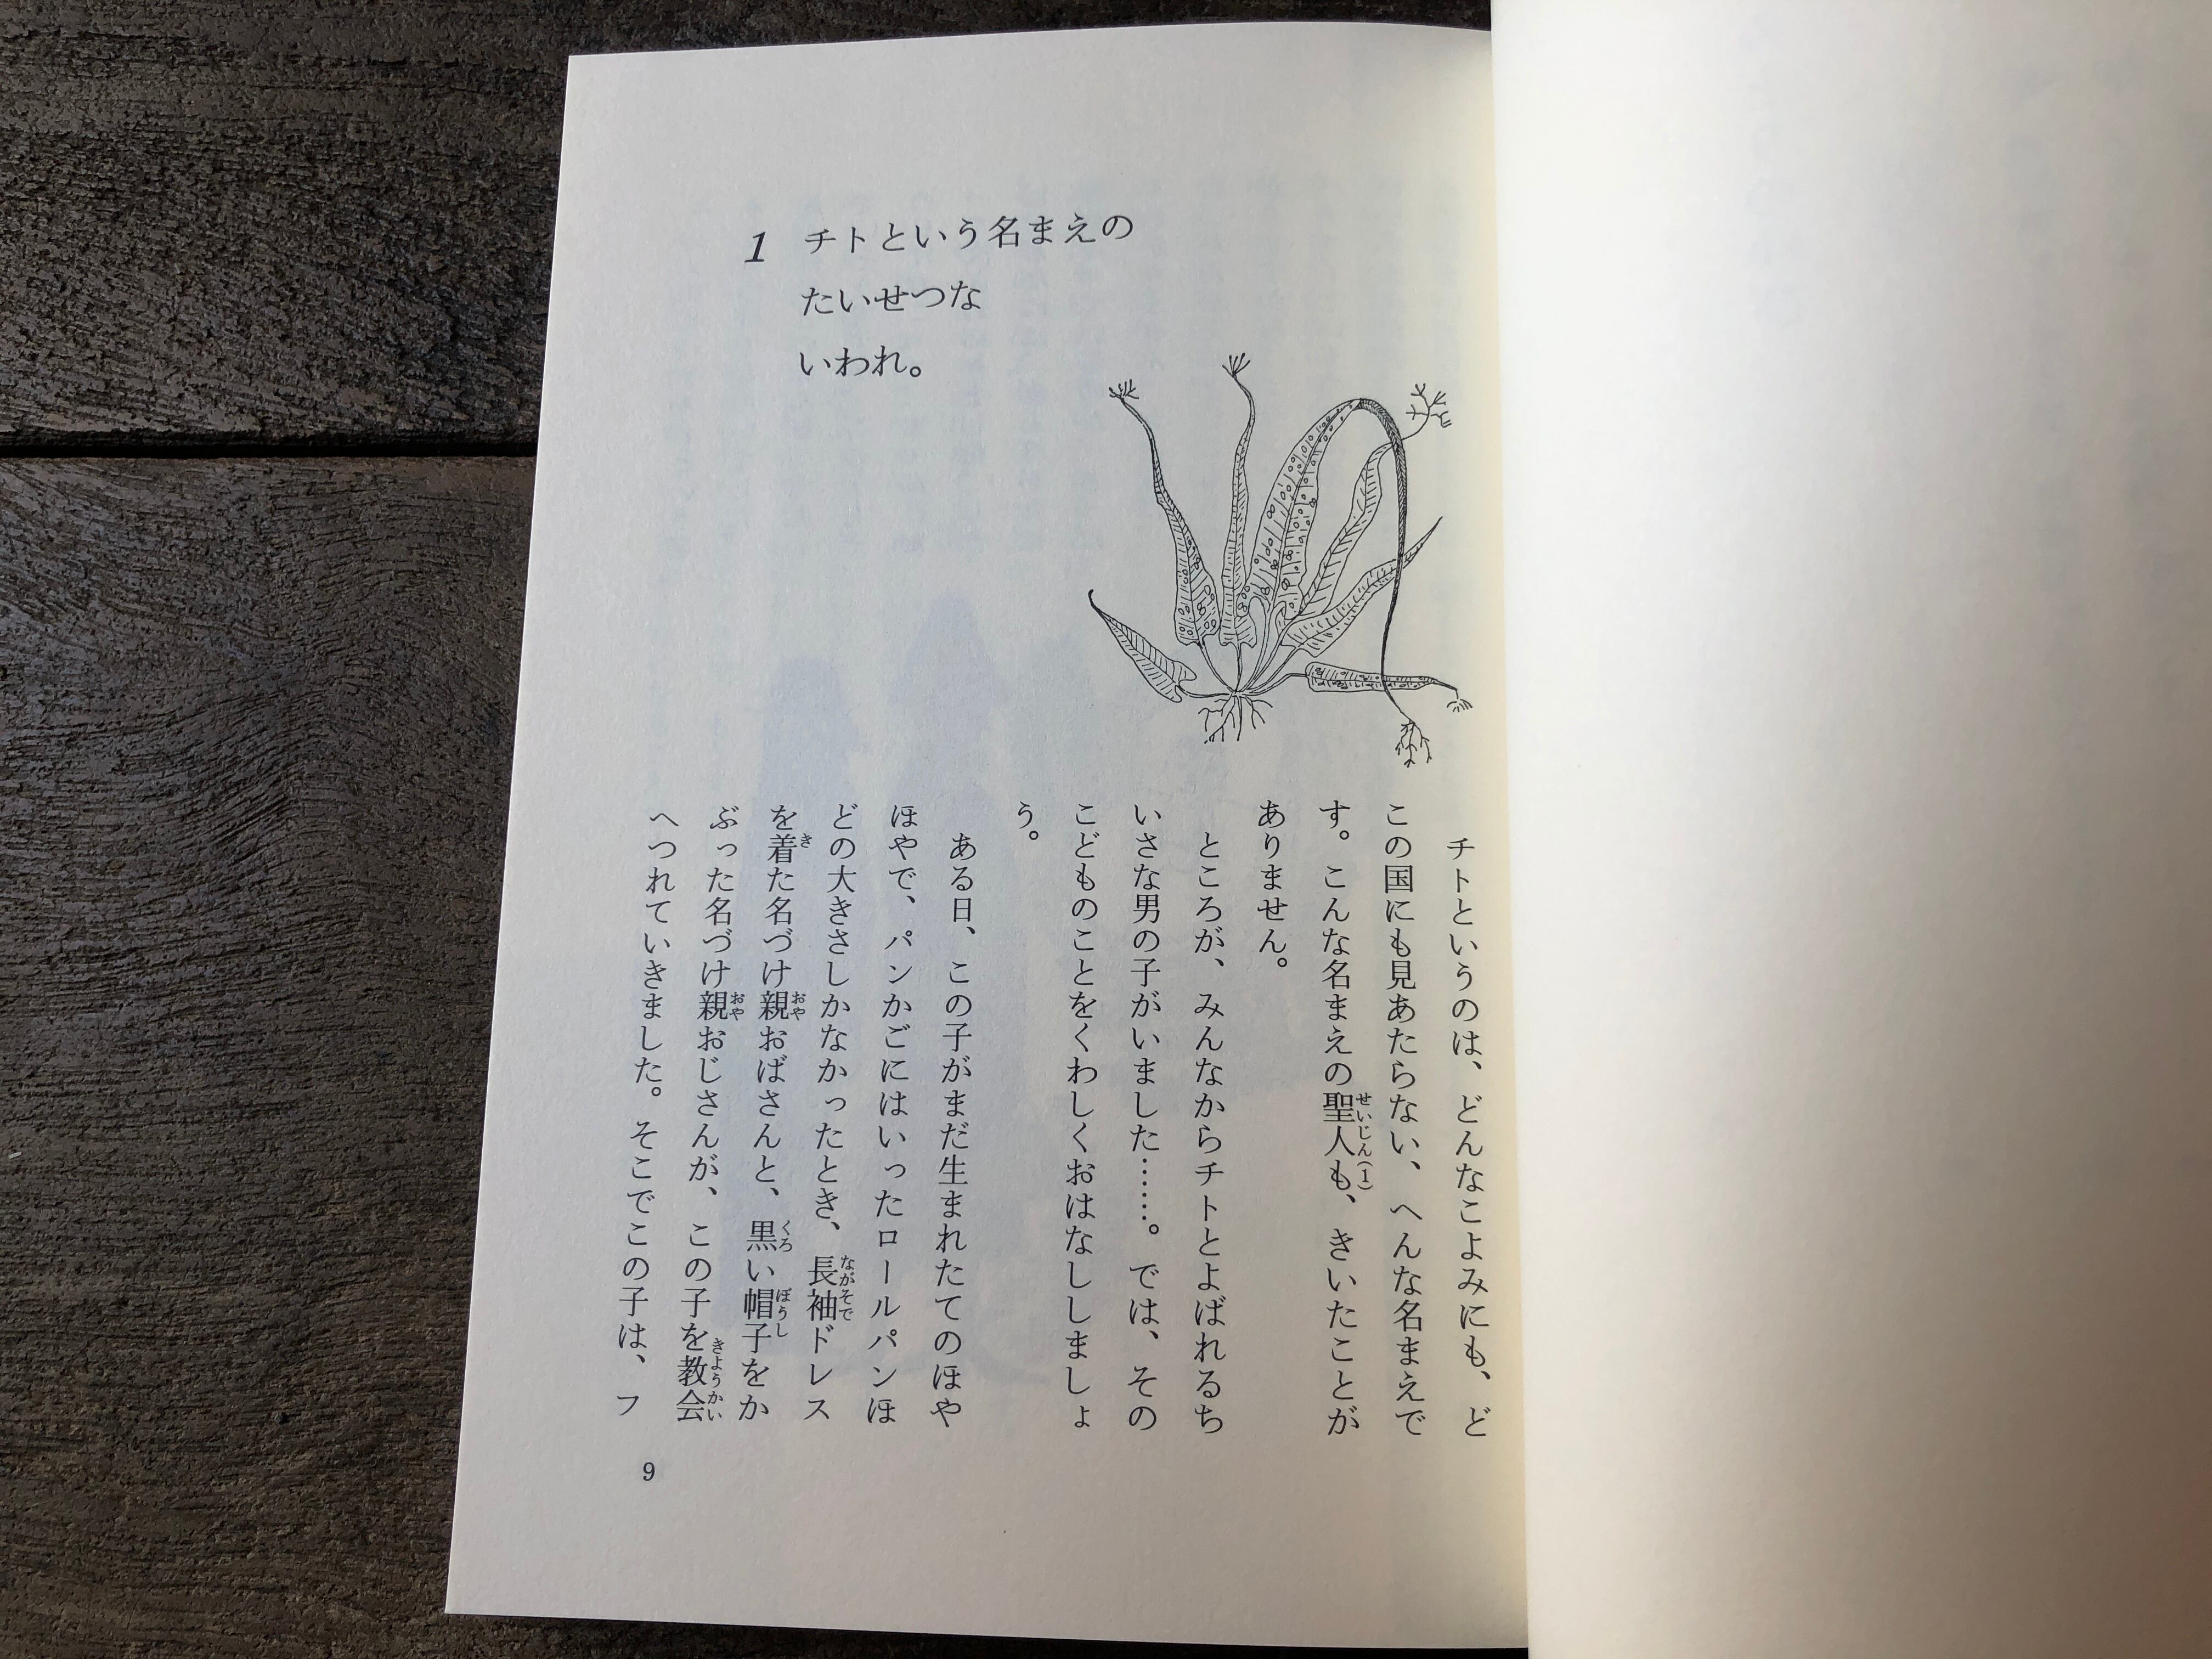 1 チトという名まえの
たいせつな
いわれ。
チトというのは、どんなこよみにも、ど
この国にも見あたらない、へんな名まえで
す。こんな名まえの聖人も、きいたことが
せいじん(1)
ありません。
ところが、みんなからチトとよばれるち
いさな男の子がいました……。では、その
こどものことをくわしくおはなししましょ
う。
ある日、この子がまだ生まれたてのほや
ほやで、パンかごにはいったロールパンほ
どの大きさしかなかったとき、長袖ドレス
ながそで
を着た名づけ親おばさんと、黒い帽子をか
き おや くろ ぼうし
ぶった名づけ親おじさんが、この子を教会
おや きようかい
へつれていきました。そこでこの子は、フ
9